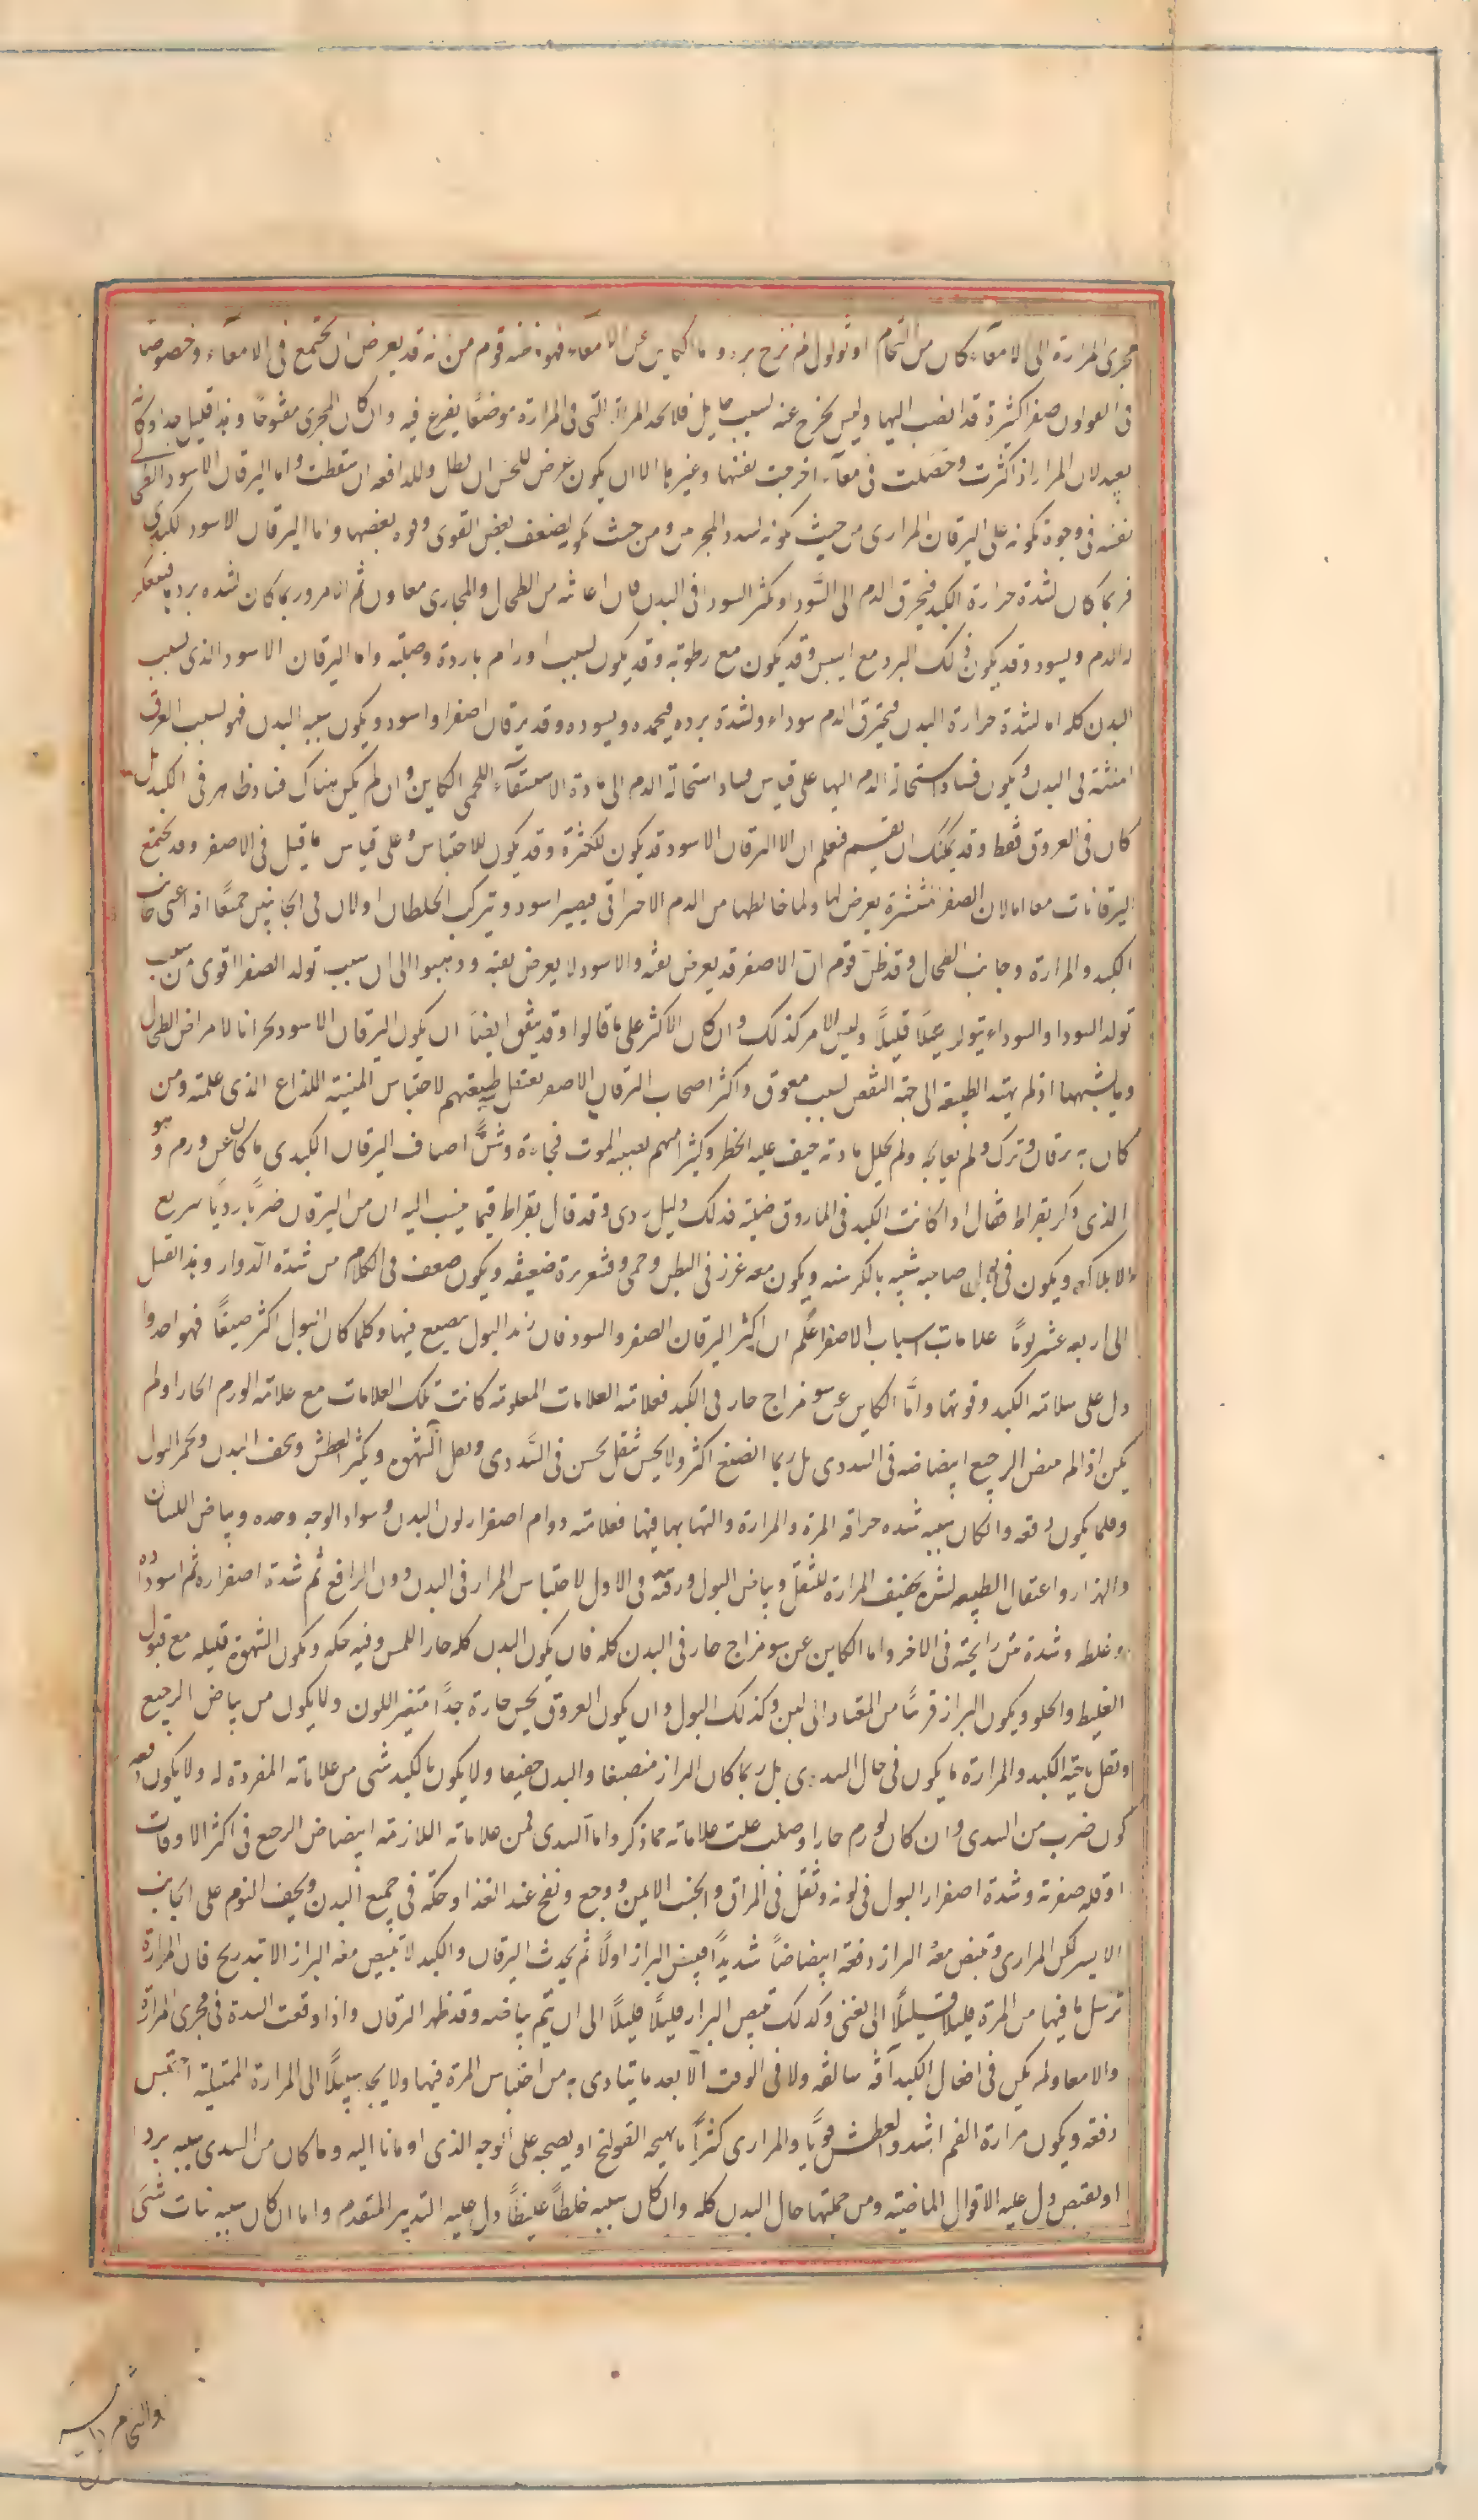 مجرى المرارة الى الامعآء كان من التحام او ثولول لم نرج برءه واما الكاين عن الامعآء فهو ما ظنه قوم من نه قد يعرض ان تجتمع فى الامعآء وخصوصا
فى القولون صفرا كثيرة قد انصب اليها وليس يخرج عنه لسبب حايل فلا تجد المرة التى فى المرارة موضعًا يفرغ فيه وان كان المجرى مفتوحًا وهذا قليل جدا وكانه
بعيد لان المرار اذا كثرت وحصلت فى معآء اخرجت نفسها وغيرها الا ان يكون عرض للحس ان بطل وللدافعه ان سقطت واما اليرقان الاسود الطحالى
نفسه فى وجوه تكونه على اليرقان المرارى من حيث كونه لسدد المجرى ومن حيث كونه لضعف بعض القوى وقوه بعضها واما اليرقان الاسود الكبدى
فربما كان لشدة حرارة الكبد فيحرق الدم الى السوداء ويكثر السودا فى البدن فان اعانته من الطحال والمجارى معاون ثم الامر وربما كان لشده برد ها فيتعكر
له الدم ويسود وقد يكون ذلك البرد مع ايبس وقد يكون مع رطوبة وقد يكون لسبب اورام باردة وصلبه واما اليرقان الاسود الذى بسبب
البدن كله اما لشدة حرارة البدن فيحترق الدم سوداء ولشدة برده فيجمده ويسوده وقد يرقان اصفر او اسود ويكون سببه البدن فهو لسبب العروق
المنبثة فى البدن ويكون فساد استحالة الدم اليها على قياس فساد استحالة الدم الى مادة الاستسقآء اللحمى الكاين وان لم يكن هناك فساد ظاهر فى الكبد بل
كان فى العروق فقط وقد يمكنك ان تقسم فتعلم ان الا اليرقان الاسود قد يكون لكثرة وقد يكون للاحتباس وعلى قياس ما قيل فى الاصفر وقد تجتمع
اليرقانات معا اما لان الصفرا منتشرة يعرض لها ولما خالطها من الدم الاحتراق فيصير اسود ويتركب الخلطان او لان فى الجانبين جميعًا افه اعنى جانب
الكبد والمرارة وجانب الطحال وقد ظن قوم ان الاصفر قد يعرض بغته والاسود لا يعرض بغته وذهبوا الى ان سبب تولد الصفرا اقوى من سبب
تولد السودا والسوداء يتولد قليلًا قليلًا وليس الامر كذلك وان كان الاكثر على ما قالوا وقد يتفق ايضًا ان يكون اليرقان الاسود بحرانا لامراض الطحال
وما يشبهها اذ لم يهتد الطبيعه الى جهة النقص لسبب معوق واكثر اصحاب اليرقان الاصفر تعتقل طبيعتهم لاحتباس المنبه اللذاع الذى علمته ومن
كان به يرقان وترك ولم يعالجه ولم تحلل مادته خيف عليه الخطر وكثيرا منهم يصيبه الموت فجاءة وشر اصناف اليرقان الكبدى ما كان عن ورم وهو
الذى ذكر بقراط فقال اذا كانت الكبد فى الماروق صلبة فذلك دليل ردى وقد قال بقراط فيما ينسب اليه ان من اليرقان ضربًا رديا سريع
الاهلاك ويكون فى بول صاحبه شبيه بالكرسنه ويكون معه غرز فى البطن وحمى وقشعريرة ضعيفه ويكون ضعف فى الكلام من شدة الدوار وهذا يقتل
الى اربعه عشر يومًا علامات اسباب الاصفر اعلم ان اكثر اليرقان الصفر والسود فان زبد البول ينصبغ فيها وكلما كان البول اكثر صبغًا فهو احمد وا
دل على سلامة الكبد وقوتها وامَّا الكاين عن سو مزاج حار فى الكبد فعلامته العلامات المعلومة كانت تلك العلامات مع علامة الورم الحار او لم
يكن اذا لم يبيض الرجيع ابيضاضه فى السددى بل ربما انصبغ اكثر ولا يحس ثقل يحس فى السددى وتقل الشهوه ويكثر العطش ويخف البدن ويحمر البول
وقلما يكون دفعه وان كان سببه شده حراقه المرة والمرارة والتهابها فيها فعلامته دوام اصفرار لون البدن وسواد الوجه وحده وبياض اللسان
والهزال واعتقال الطبيعه لشدة تجفيف المرارة للثفل وبياض البول ورقته فى الاول لاحتباس المرار فى البدن دون الرافع ثم شدة اصفراره ثم اسوداده
وغلظه وشدة نتن رايحته فى الاخر واما الكاين عن سو مزاج حار فى البدن كله فان يكون البدن كله حار اللمس وفيه حكه ويكون الشهوة قليله مع قبول
الغليظ والحلو ويكون البراز قريبًا من المعتاد الى لين وكذلك البول وان يكون العروق يحس حارة جدًا متغير اللون ولا يكون من بياض الرجيع
وثقل ناحية الكبد والمرارة ما يكون فى حال السددى بل ربما كان البراز منصبغا والبدن خفيفا ولا يكون بالكبد شى من علاماته المفردة له ولا يكون دفعه
كون ضرب من السدى وان كان لورم حار او صلب علمت علاماته مما ذكر واما السدى فمن علاماته اللازمة ابيضاض الرجع فى اكثر الاوقات
او قله صفرته وشدة اصفرار البول فى لونه وثقل فى المراق والجنب الايمن ووجع ونفخ عند الغذا وحكه فى جميع البدن ويخف النوم على الجانب
الايسر لكن المرارى يبيض معه البراز دفعة ابيضاضًا شديدًا فيبيض البراز اولًا ثم يحدث اليرقان والكبد لا تبيض معه البراز الا بتدريج فان المرارة
ترسل ما فيها من المرة قليلًا قليلًا الى ان تفنى وكذلك يبيض البراز قليلًا قليلًا الى ان يتم بياضه وقد ظهر اليرقان واذا وقعت السدة فى مجرى المرارة
والامعا ولم يكن فى افعال الكبد آفه سالفه ولا فى الوقت الا بعد ما يتادى به من احتباس المرة فيها ولا يجد سبيلًا الى المرارة الممتلية احتبس
دفعه ويكون مرارة الفم اشد والعطش قويًا والمرارى كثيرًا ما يهيجه القولنج او يصحبه على الوجه الذى اومانا اليه وما كان من السدى سببه برد
او يقبض دل عليه الاقوال الماضيه ومن جملتها حال البدن كله وان كان سببه خلطًا غليظًا دل عليه التدبير المتقدم واما ان كان سببه نبات شئ
والتحام